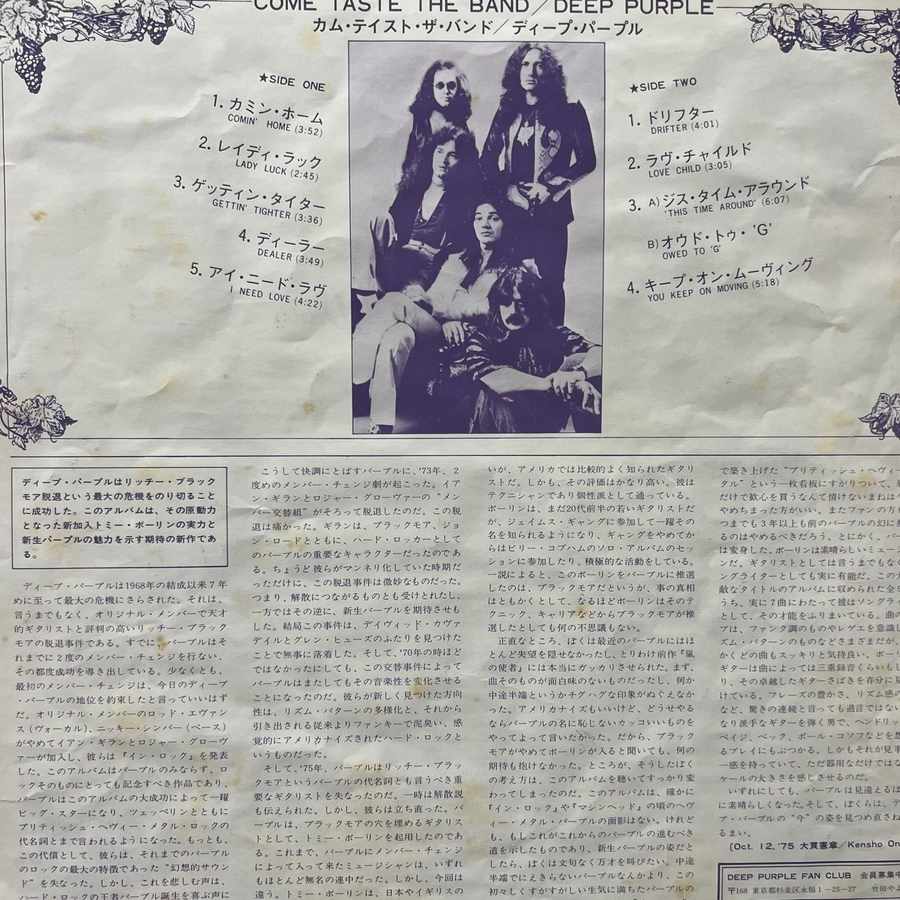 COME TASTE THE BAND／DEEP PURPLE
カム・テイスト・ザ・バンド／ディープ・パープル
★SIDE ONE
1. カミン・ホーム
COMIN' HOME (3:52)
2. レイディ・ラック
LADY LUCK (2:45)
3. ゲッティン・タイター
GETTIN' TIGHTER (3:36)
4. ディーラー
DEALER (3:49)
5. アイ・ニード・ラヴ
I NEED LOVE (4:22)
★SIDE TWO
1. ドリフター
DRIFTER (4:01)
2. ラヴ・チャイルド
LOVE CHILD (3:05)
3. A) ジス・タイム・アラウンド
'THIS TIME AROUND' (6:07)
B) オウド・トゥ・'G'
OWED TO 'G'
4. キープ・オン・ムーヴィング
YOU KEEP ON MOVING (5:18)
ディープ・パープルはリッチー・ブラック
モア脱退という最大の危機をのり切ること
に成功した。このアルバムは、その原動力
となった新加入トミー・ボーリンの実力と
新生パープルの魅力を示す期待の新作であ
る。
ディープ・パープルは1968年の結成以来7年
めに至って最大の危機にさらされた。それは、
言うまでもなく、オリジナル・メンバーで天才
的ギタリストと評判の高いリッチー・ブラック
モアの脱退事件である。すでにパープルはそ
れまでに2度のメンバー・チェンジを行ない、
その都度成功を導き出している。少なくとも、
最初のメンバー・チェンジは、今日のディープ
・パープルの地位を約束したと言っていいはず
だ。オリジナル・メンバーのロッド・エヴァン
ス（ヴォーカル）、ニッキー・シンパー（ベース）
がやめてイアン・ギランとロジャー・グローヴ
ァーが加入し、彼らは『イン・ロック』を発表
した。このアルバムはパープルのみならず、ロ
ックそのものにとっても記念すべき作品であり、
パープルはこのアルバムの大成功によって一躍
ビッグ・スターになり、ツェッペリンとともに
ブリティッシュ・ヘヴィー・メタル・ロックの
代名詞とまで言われるようになった。もっとも、
この代償として、彼らは、それまでのパープル
のロックの最大の特徴であった“幻想的サウン
ド”を失なった。しかし、これを悲しむ声は、
ハード・ロックの王者パープル誕生を喜ぶ声に
こうして快調にとばすパープルに、'73年、2
度めのメンバー・チェンジ劇が起こった。イア
ン・ギランとロジャー・グローヴァーの“メン
バー交替組”がそろって脱退したのだ。この脱
退は痛かった。ギランは、ブラックモア、ジョ
ン・ロードとともに、ハード・ロッカーとして
のパープルの重要なキャラクターだったのであ
る。ちょうど彼らがマンネリ化していた時期だ
っただけに、この脱退事件は微妙なものだった。
つまり、解散につながるものとも受けとれたし、
一方ではその逆に、新生パープルを期待させも
した。結局この事件は、デイヴィッド・カヴァ
デイルとグレン・ヒューズのふたりを見つけた
ことで無事に落着した。そして、'70年の時ほど
ではなかったにしても、この交替事件によって
パープルはまたしてもその音楽性を変化させる
ことになったのだ。彼らが新しく見つけた方向
性は、リズム・パターンの多様化と、それから
引き出される従来よりファンキーで泥臭い、感
覚的にアメリカナイズされたハード・ロックと
いうものだった。
そして、'75年、パープルはリッチー・ブラッ
クモアというパープルの代名詞とも言うべき重
要なギタリストを失なったのだ。一時は解散説
も伝えられた。しかし、彼らは立ち直った。パ
ープルは、ブラックモアの穴を埋めるギタリス
トとして、トミー・ボーリンを起用したのであ
る。これまで、パープルにメンバー・チェンジ
によって入って来たミュージシャンは、いずれ
もほとんど無名の連中だった。しかし、今回は
違う。トミー・ボーリンは、日本やイギリスの
いが、アメリカでは比較的よく知られたギタリ
ストだ。しかも、その評価はかなり高い。彼は
テクニシャンであり個性派として通っている。
ボーリンは、まだ20代前半の若いギタリストだ
が、ジェイムス・ギャングに参加して一躍その
名を知られるようになり、ギャングをやめてか
らはビリー・コブハムのソロ・アルバムのセッシ
ョンに参加したり、積極的な活動をしている。
一説によると、このボーリンをパープルに推選
したのは、ブラックモアだというが、事の真相
はともかくとして、なるほどボーリンはそのテ
クニック、キャリアなどからブラックモアが推
選したとしても何の不思議もない。
正直なところ、ぼくは最近のパープルにはほ
とんど失望を隠せなかったし、とりわけ前作『嵐
の使者』には本当にガッカリさせられた。まず、
曲そのものが面白味のないものだったし、何か
中途半端というかチグハグな印象がぬぐえなか
った。アメリカナイズもいいけど、どうせやる
ならパープルの名に恥じないカッコいいものを
やってよって言いたかった。だから、ブラック
モアがやめてボーリンが入ると聞いても、何の
期待も抱けなかった。ところが、そうしたぼく
の考え方は、このアルバムを聴いてすっかり変
わってしまったのだ。このアルバムは、確かに
『イン・ロック』や『マシンヘッド』の頃のヘヴ
ィー・メタル・パープルの面影はない。けれど
も、もしこれがこれからのパープルの進むべき
道を示したものであり、新生パープルの姿だと
したら、ぼくは文句なく万才を叫びたい。中途
半端でにえきらないパープルなんかより、この
初々しくすがすがしい生気に満ちたパープルの
で築き上げた“ブリティッシュ・ヘヴィー・
タル”という一枚看板にすがりついて、
だけで歓心を買うなんて情けないまねは
やめちまった方がいい。またファンの方も
つまでも3年以上も前のパープルの幻に
るのはやめるべきだろう。とにかく、パー
は変身した。ボーリンは素晴らしいミュー
ンだ。ギタリストとしては言うまでもなく
ングライターとしても実に有能だ。この
敵なタイトルのアルバムに収められた全
うち、実に7曲にわたって彼はソングラ
として、その才能をふりまいている。曲の
プは、ファンク調のものやレゲエを意識し
ズム・パターンのものなどさまざまだが、
かくどの曲もスッキリと気持良い。ボーリ
ギターは曲によっては三重録音くらいもし
り、その卓越したギターさばきを存分に
けている。フレーズの豊かさ、リズム感の
など、驚きの連続と言っても過言ではない
り派手なギターを弾く男で、ヘンドリッ
ペイジ、ベック、ポール・コソフなどを想
るプレイにもぶつかる。しかもそれが見事
一感を持っていて、ただ器用なだけではな
ケールの大きさを感じさせるのだ。
いずれにしても、パープルは見違えるほ
に素晴しくなった。そして、ぼくらは、デ
プ・パープルの“今”の姿を見つめ直さね
るまい。
(Oct. 12,'75 大貫憲章/Kensho On
DEEP PURPLE FAN CLUB 会員募集中
〒168 東京都杉並区永福1-25-27